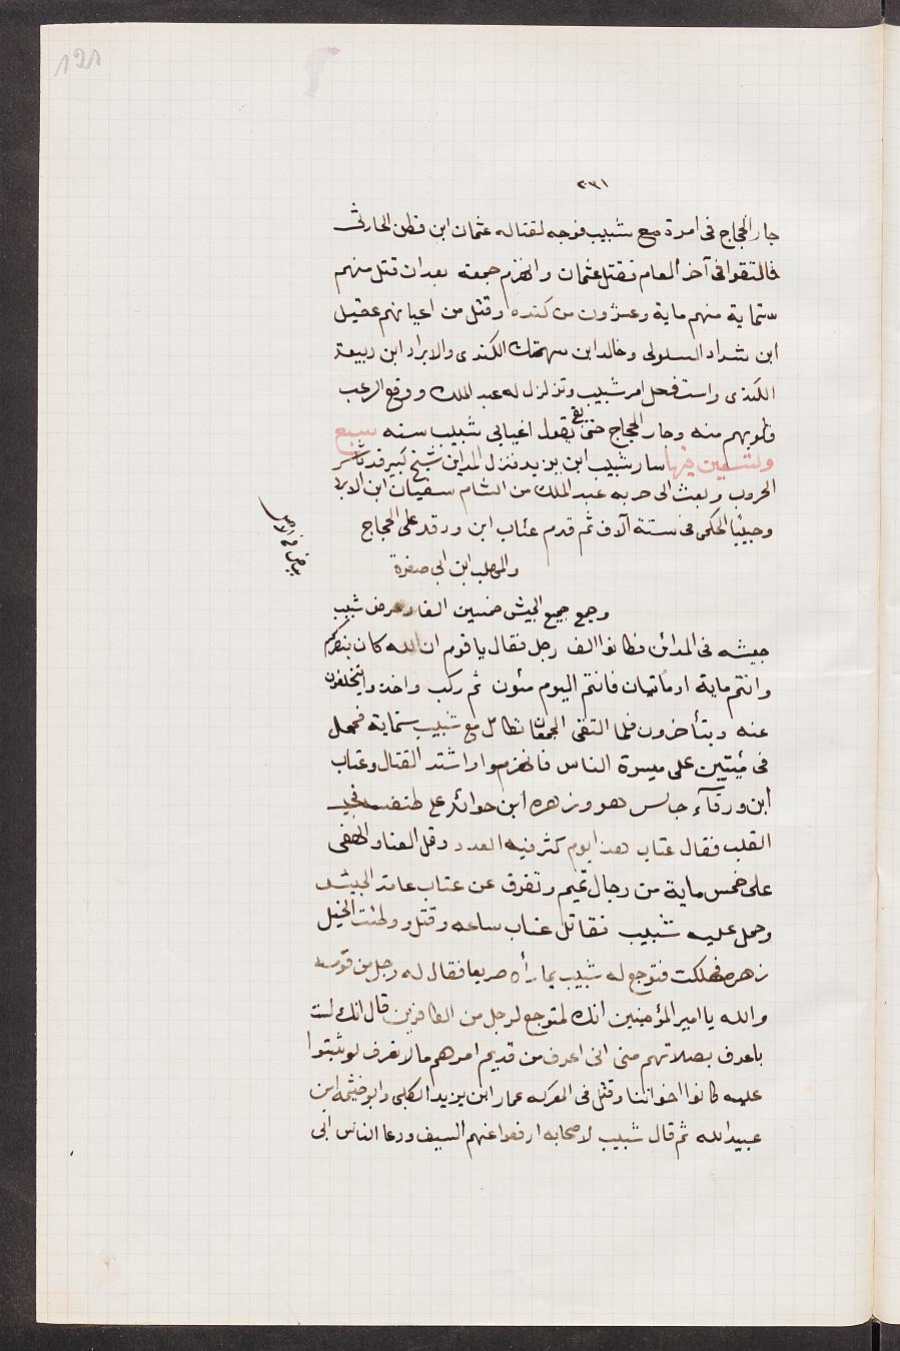 ١٢١
٣٣١
حار الحجاج فى امره مع شبيب فوجه لقتاله عثمان ابن قطن الحارثى
فالتقوا فى آخر العام فقتل عثمان وانهزم جمعه بعد ان قتل منهم
ستماية منهم ماية وعشرون من كنده وقتل من اعيانهم عقيل
ابن شداد السلولى وخالد ابن نهيك الكندى والابراد ابن ربيعة
الكندى واستفحل امر شبيب وتزلزل له عبد الملك ووقع الرعب
قلوبهم منه وحار الحجاج حتى بقى يقول اعيانى شبيب سنه سبع
وتسعين فيها سار شبيب ابن يزيد فنزل المداين شيخ كبير قد باشر
الحروب وبعث الى حربه عبد الملك من الشام سفيان ابن الابرد
وحبيبا الحكمى فى ستة آلاف ثم قدم عتاب ابن ورقد على الحجاج
بياض فى الاصل
والمهلب ابن ابى صفرة
وجمع جميع الجيش خمسين الفا وعرض شبيب
جيشه فى المدائن فكانوا الف رجل فقال يا قوم ان الله كان ينصركم
وانتم ماية او مأتيان فانتم اليوم مئون ثم ركب واخذوا يتخلفون
عنه ويتأخرون فلما التقى الجمعان تكامل مع شبيب ستماية فحمل
فى مئتين على ميسرة الناس فانهزموا واشتد القتال وعتاب
ابن ورقآء جالس هو وزهره ابن حوائر على طنفسه فى
القلب فقال عتاب هذا يوم كثر فيه العدد وقل العنا والهفى
على خمس ماية من رجال تميم وتفرق عن عتاب عامة الجيش
وحمل عليه شبيب فقاتل عتاب ساعه وقتل ووطئت الخيل
زهره فهلكت فتوجع له شبيب لما رأه صريعا فقال له رجل من قومه
والله يا امير المؤمنين انك لمتوجع لرجل من الكافرين قال انك لست
باعرف بصلاتهم منى انى اعرف من قديم امرهم ما لا تعرف لو ثبتوا
عليه كانوا اخواننا وقتل فى المعركه عمار ابن يزيد الكلبى وابو خيثمه ابن
عبيد الله ثم قال شبيب لاصحابه ارفعوا عنهم السيف ودعا الناس الى